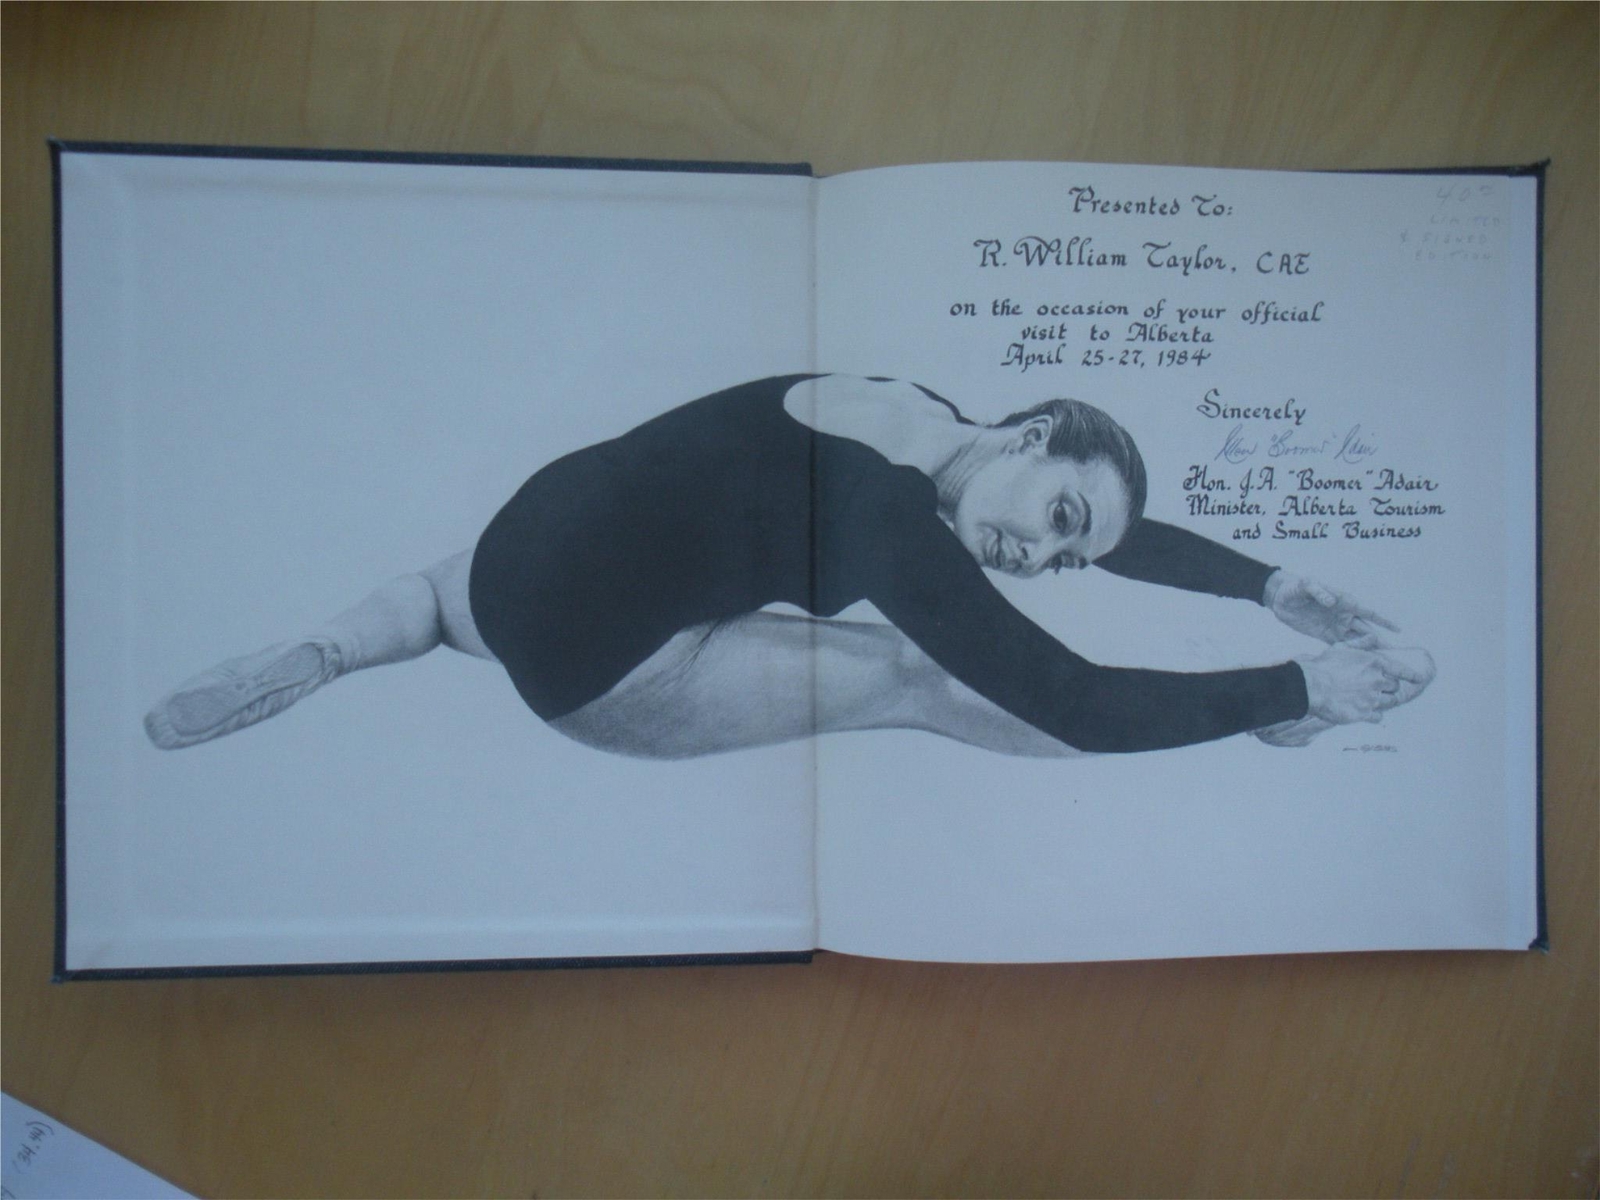 Presented To:
R. William Taylor, CAE
on the occasion of your official
visit to Alberta
April 25-27, 1984
Sincerely
"Boomer" Adair
Hon. J.A. "Boomer" Adair
Minister, Alberta Tourism
and Small Business
LIMITED
& SIGNED
EDITION
34, 44)